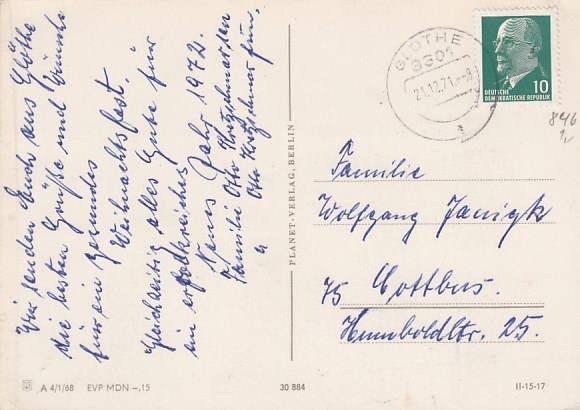 Wir senden Euch aus Glöthe
die besten Grüße und Wünsche
für ein gesundes
Weihnachtsfest.
Gleichzeitig alles Gute für
ein erfolgreiches
Neues Jahr 1972.
Familie Otto sen
u Otto jun.
PLANET-VERLAG, BERLIN
GLÖTHE
3301
21.12.71.-8
a
10
DEUTSCHE
DEMOKRATISCHE REPUBLIK
846
Familie
Wolfgang Janigk
75 Cottbus.
Humboldtstr. 25.
A 4/1/68 EVP MDN –.15
30 884
II-15-17